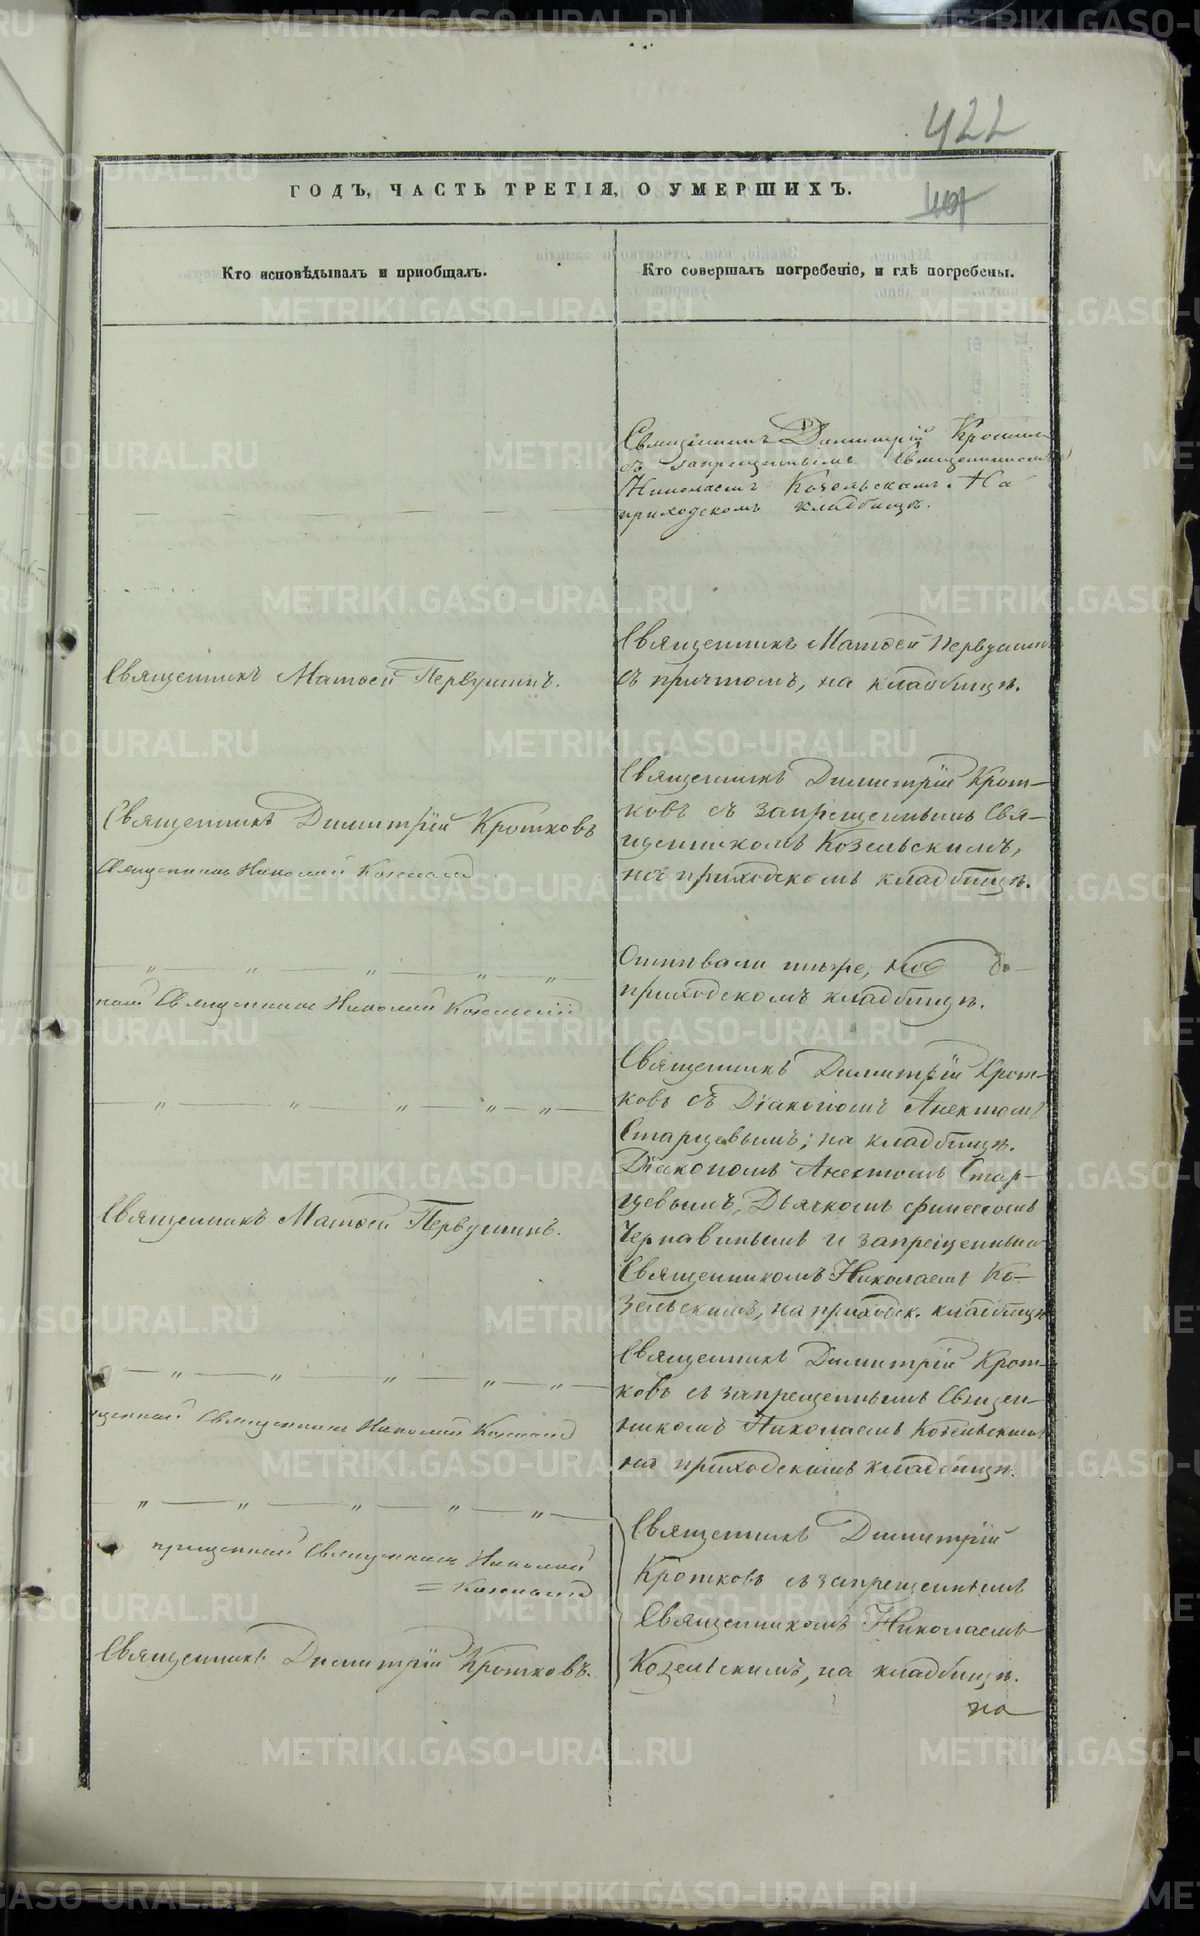 422
ГОДЪ, ЧАСТЬ ТРЕТІЯ, О УМЕРШИХЪ.
Кто исповѣдывалъ и приобщалъ.
Кто совершалъ погребеніе, и гдѣ погребены.
Священникъ Димитрій Кротков
съ запрещеннымъ Священникомъ
Николаемъ Козельскимъ. На
приходскомъ кладбищѣ.
Священникъ Матѳей Первушинъ.
Священникъ Матѳей Первушинъ
съ причтомъ, на кладбищѣ.
Священникъ Димитрій Кротковъ
Священникъ Николай
Священникъ Димитрій Крот-
ковъ съ запрещеннымъ Свя-
щенникомъ Козельскимъ,
на приходскомъ кладбищѣ.
— „ — „ — „ — „ — „ —
Священникъ Николай
Отпѣвали тѣже, на
приходскомъ кладбищѣ.
— „ — „ — „ — „ — „ —
Священникъ Димитрій Крот-
ковъ съ Діакономъ Анектомъ
Старцевымъ; на кладбищѣ.
Священникъ Матѳей Первушинъ.
Діакономъ Анектомъ Стар-
цевымъ, Дьячкомъ Финеесомъ
Чернавинымъ и запрещеннымъ
Священникомъ Николаемъ Ко-
зельскимъ, на приходск. кладбищѣ
— „ — „ — „ — „ — „ —
щенный Священникъ Николай
Священникъ Димитрій Крот-
ковъ съ запрещеннымъ Священ-
никомъ Николаемъ Козельскимъ
на приходскомъ кладбищѣ.
— „ — „ — „ — „ — „ —
Священникъ Николай
Священникъ Димитрій Кротковъ.
Священникъ Димитрій
Кротковъ съ запрещеннымъ
Священникомъ Николаемъ
Козельскимъ, на кладбищѣ.
на
METRIKI.GASO-URAL.RU